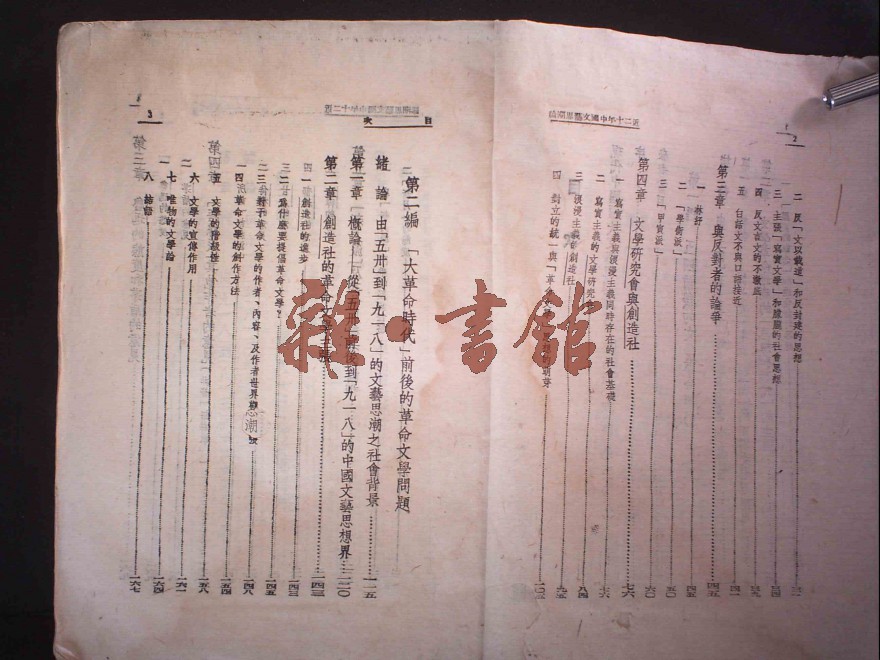 近二十年中國文藝思潮論
2
二 反「文以載道」和反封建的思想
三 主張「寫實文學」和朦朧的社會思想
四 反文言文的不徹底
五 白話文不與口語接近
第三章 與反對者的論爭
一 林紓
二 「學衡派」
三 「甲寅派」
第四章 文學研究會與創造社
一 寫實主義與浪漫主義同時存在的社會基礎
二 寫實主義的文學研究會
三 浪漫主義的創造社
四 對立的統一與「革命文學」的萌芽
目 次
3
第二編 「大革命時代」前後的革命文學問題
緒 論 由「五卅」到「九一八」的文藝思潮之社會背景 一一五
第一章 概論——從「五卅」前後到「九一八」的中國文藝思想界
第二章 創造社的革命文學主張 一四三
一 創造社的進步 一四三
二 爲什麼要提倡革命文學? 一四五
三 對于革命文學的作者、內容、及作者世界觀 一四八
四 革命文學的創作方法 一五四
五 文學的階級性 一五八
六 文學的宣傳作用 一六一
七 唯物的文學論 一六四
八 結語 一六七
雜·書館